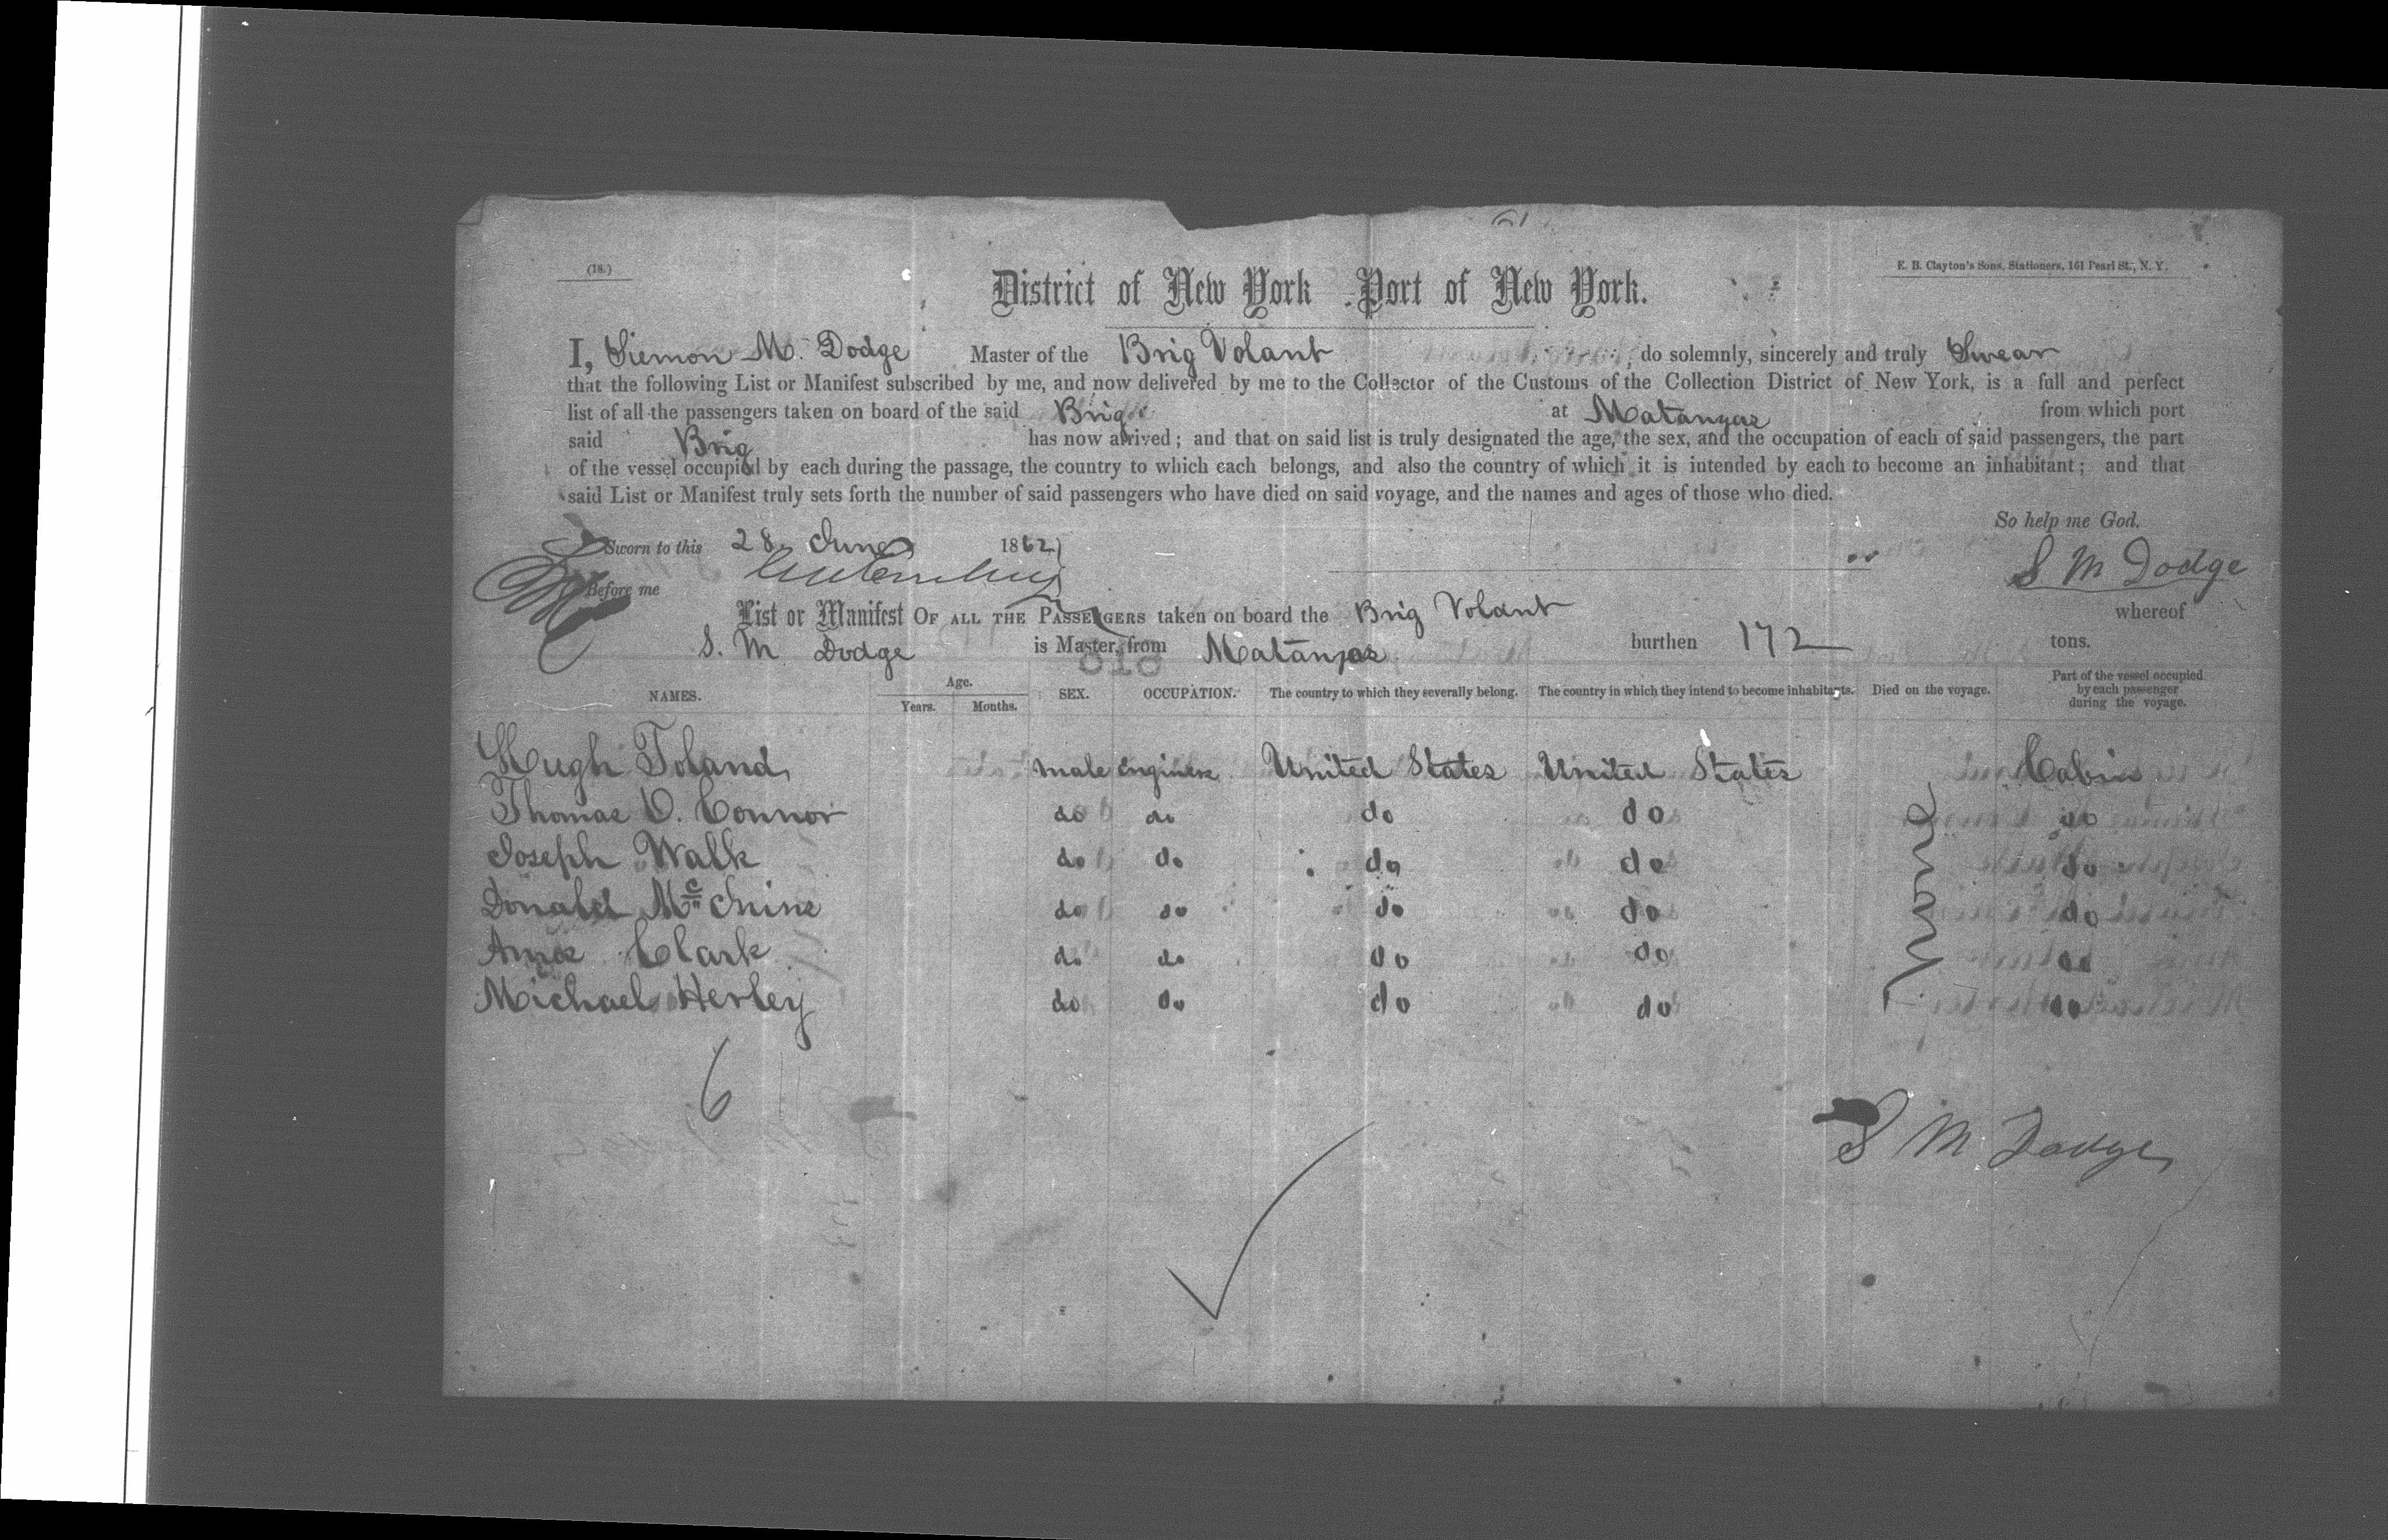 (18.)
E. B. Clayton's Sons, Stationers, 161 Pearl St., N. Y.
District of New York Port of New York.
I, Siemon M. Dodge Master of the Brig Volant do solemnly, sincerely and truly Swear
that the following List or Manifest subscribed by me, and now delivered by me to the Collector of the Customs of the Collection District of New York, is a full and perfect
list of all the passengers taken on board of the said Brig at Matanzas from which port
said Brig has now arrived; and that on said list is truly designated the age, the sex, and the occupation of each of said passengers, the part
of the vessel occupied by each during the passage, the country to which each belongs, and also the country of which it is intended by each to become an inhabitant; and that
said List or Manifest truly sets forth the number of said passengers who have died on said voyage, and the names and ages of those who died.
So help me God.
Sworn to this 28 June 1862
S M Dodge
Before me
List or Manifest OF ALL THE PASSENGERS taken on board the Brig Volant whereof
S. M Dodge is Master, from Matanzas burthen 172 tons.
NAMES. Age. Years. Months. SEX. OCCUPATION. The country to which they severally belong. The country in which they intend to become inhabitants. Died on the voyage. Part of the vessel occupied by each passenger during the voyage.
Hugh Toland male Engineer United States United States Cabin
Thomas O. Connor do do do do do
Joseph Walk do do do do do
Donald Mc do do do do do
Amos Clark do do do do do
Michael Herley do do do do do
None
6
S M Dodge